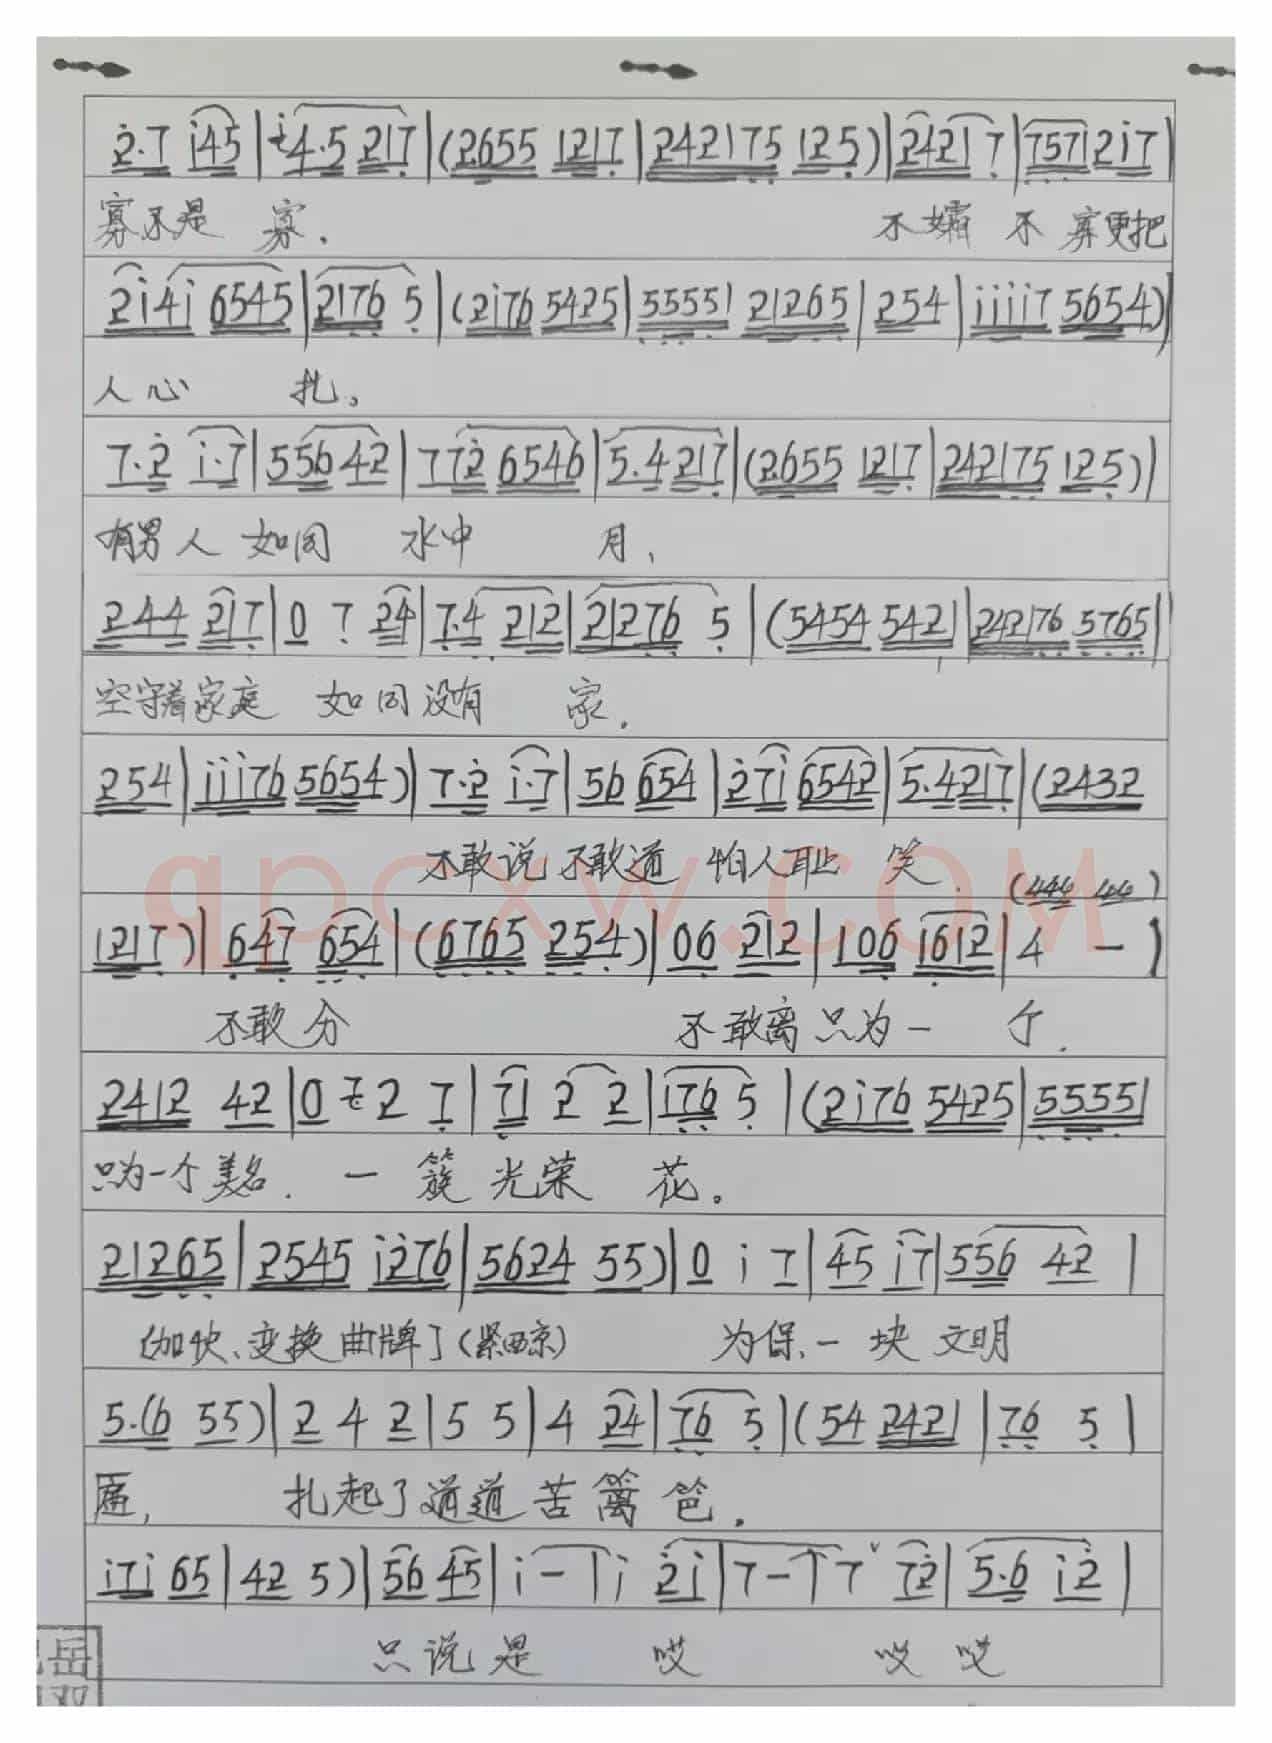 2·7 i45 | i4·5 217 | (2655 1217 | 242175 125) | 2421 7 | 7571 2i7 |
寡不是 寡. 不孀 不 寡更把
2i4i 6545 | 2176 5 | (2i76 5425 | 55551 21265 | 254 | iiii7 5654)
人心 扎。
7·2 i·7 | 556 42 | 772 6546 | 5·4 217 | (2655 1217 | 242175 125) |
有男人 如同 水中 月,
244 217 | 0 7 24 | 7·4 212 | 21276 5 | (5454 5421 | 242176 5765 |
空守着家庭 如同没有 家.
254 | iii76 5654) | 7·2 i·7 | 56 654 | 27i 6542 | 5·4217 | (2432
不敢说 不敢道 怕人耻 笑.
(444 44)
1217) | 647 654 | (6765 254) | 06 212 | 106 1612 | 4 — )
不敢分 不敢离 只为一 个.
2412 42 | 0 7 2 7 | 71 2 2 | 176 5 | (2i76 5425 | 55551
只为一个美名. 一 簇 光荣 花。
21265 | 2545 i276 | 5624 55) | 0 i 7 | 45 i7 | 556 42 |
(加快、变换曲牌] (紧西京) 为保、一 块 文明
5·(6 55) | 2 4 2 | 5 5 | 4 24 | 76 5 | (54 2421 | 76 5 |
匾, 扎起了道道苦篱笆.
i7i 65 | 42 5) | 56 45 | i — | i 2i | 7 — | 7 ˅ 72 | 5·6 i2 |
只说是 哎 哎哎
qpcxw.com
岳